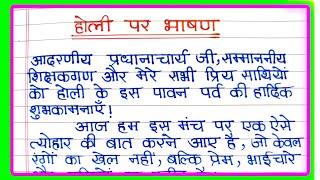 होली पर भाषण
आदरणीय प्रधानाचार्य जी, सम्माननीय
शिक्षकगण और मेरे सभी प्रिय साथियों
को होली के इस पावन पर्व की हार्दिक
शुभकामनाएँ!
आज हम इस मंच पर एक ऐसे
त्योहार की बात करने आए है, जो केवल
रंगों का खेल नहीं, बल्कि प्रेम, भाईचारे